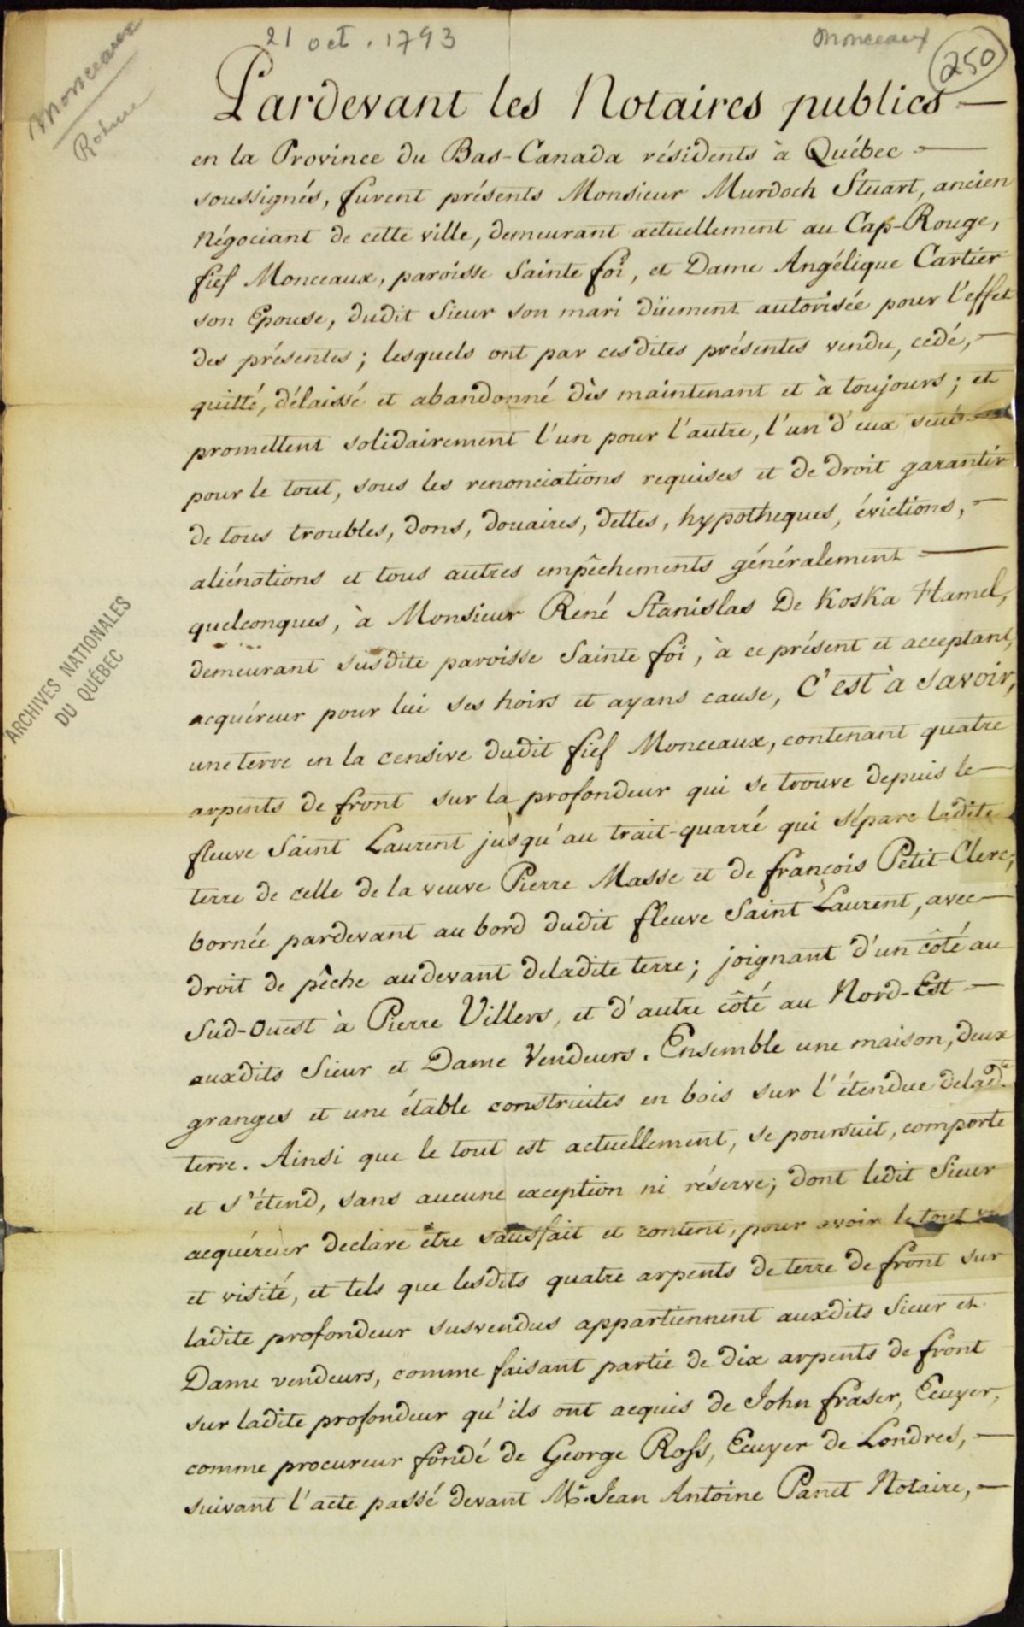 21 oct. 1793
Monceaux
250
Monceaux
Pardevant les Notaires publics —
en la Province du Bas-Canada résidents à Québec —
soussignés, furent présents Monsieur Murdoch Stuart, ancien
Négociant de cette ville, demeurant actuellement au Cap-Rouge,
fief Monceaux, paroisse Sainte foi, et Dame Angélique Cartier
son Epouse, dudit Sieur son mari düement autorisée pour l'effet
des présentes; lesquels ont par cesdites présentes vendu, cédé, —
quitté, délaissé et abandonné dès maintenant et à toujours; et
promettent solidairement l'un pour l'autre, l'un d'eux seul
pour le tout, sous les renonciations requises et de droit garantir
de tous troubles, dons, douaires, dettes, hypotheques, évictions, —
aliénations et tous autres empêchements généralement —
quelconques, à Monsieur René Stanislas De Koska Hamel,
demeurant susdite paroisse Sainte foi, à ce présent et acceptant,
acquéreur pour lui ses hoirs et ayans cause, C'est à savoir,
une terre en la censive dudit fief Monceaux, contenant quatre
arpents de front sur la profondeur qui se trouve depuis le
fleuve Saint Laurent jusqu'au trait-quarré qui sépare ladite
terre de celle de la veuve Pierre Masse et de françois Petit-Clerc,
bornée pardevant au bord dudit fleuve Saint Laurent, avec —
droit de pêche audevant deladite terre; joignant d'un côté au
Sud-Ouest à Pierre Villers, et d'autre côté au Nord-Est —
auxdits Sieur et Dame Vendeurs. Ensemble une maison, deux
granges et une étable construites en bois sur l'étendue delad.e
terre. Ainsi que le tout est actuellement, se poursuit, comporte
et s'étend, sans aucune exception ni réserve; dont ledit Sieur
acquéreur declare être satisfait et content, pour avoir le tout vu
et visité, et tels que lesdits quatre arpents de terre de front sur
ladite profondeur susvendus appartiennent auxdits Sieur et
Dame vendeurs, comme faisant partie de dix arpents de front
sur ladite profondeur qu'ils ont acquis de John fraser, Ecuyer,
comme procureur fondé de George Ross, Ecuyer de Londres, —
suivant l'acte passé devant Mr. Jean Antoine Panet Notaire, —
ARCHIVES NATIONALES
DU QUÉBEC